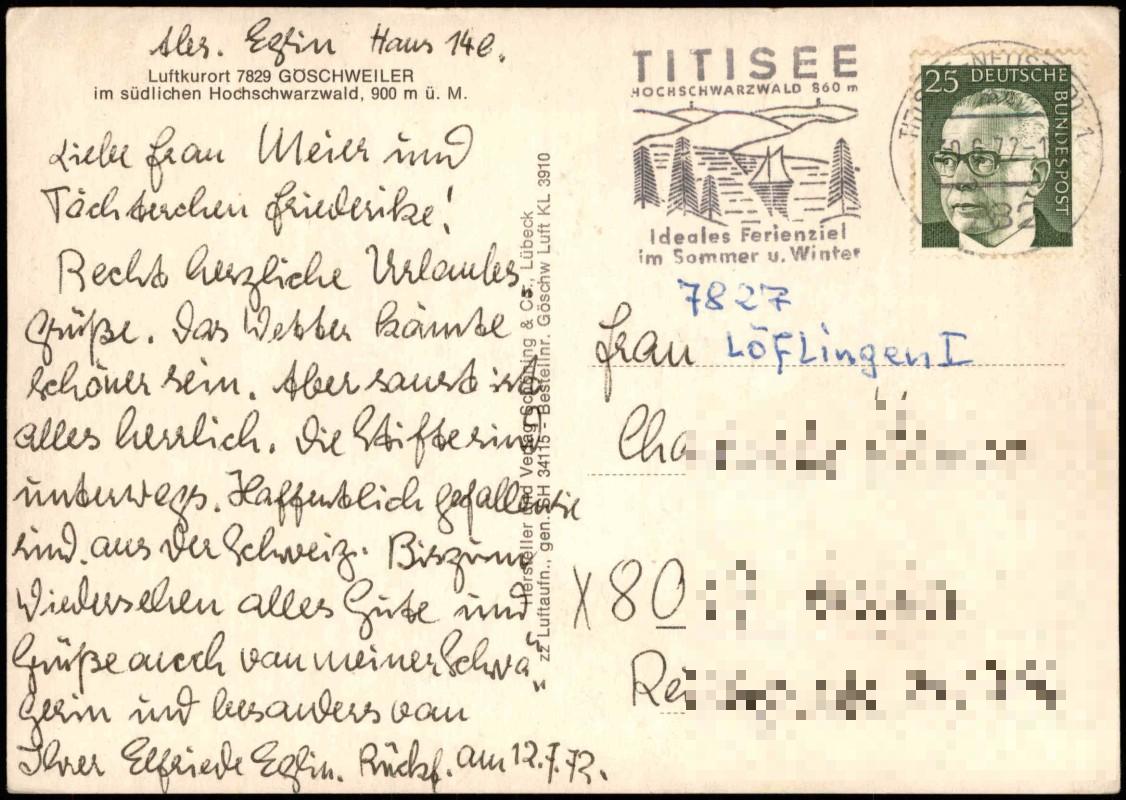 Abs. Eglin Haus 14e.
Luftkurort 7829 GÖSCHWEILER
im südlichen Hochschwarzwald, 900 m ü. M.
Liebe Frau Meier und
Töchterchen Friederike!
Recht herzliche Urlaubs
grüße. Das Wetter könnte
schöner sein. Aber sonst ist
alles herrlich. Die Stifte sind
unterwegs. Hoffentlich gefallen sie
sind aus der Schweiz. Bis zum
Wiedersehen alles Gute und
Grüße auch von meiner Schwä„
gerin und besonders von
Ihrer Elfriede Eglin. Rückf. am 12.7.72.
Hersteller und Verlag Schöning & Co., Lübeck
zz Luftaufn., gen. SH 34115 - Bestellnr. Göschw Luft KL 3910
TITISEE
HOCHSCHWARZWALD 860 m
Ideales Ferienziel
im Sommer u. Winter
25 DEUTSCHE
BUNDESPOST
7827
Frau LÖFLingen I
Cha
X80
Rei